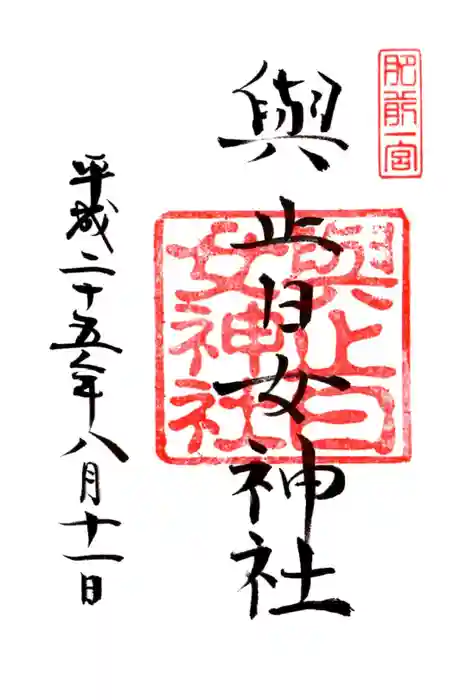 肥前一宮
與止日女神社
與止日
女神社
平成二十五年八月十一日